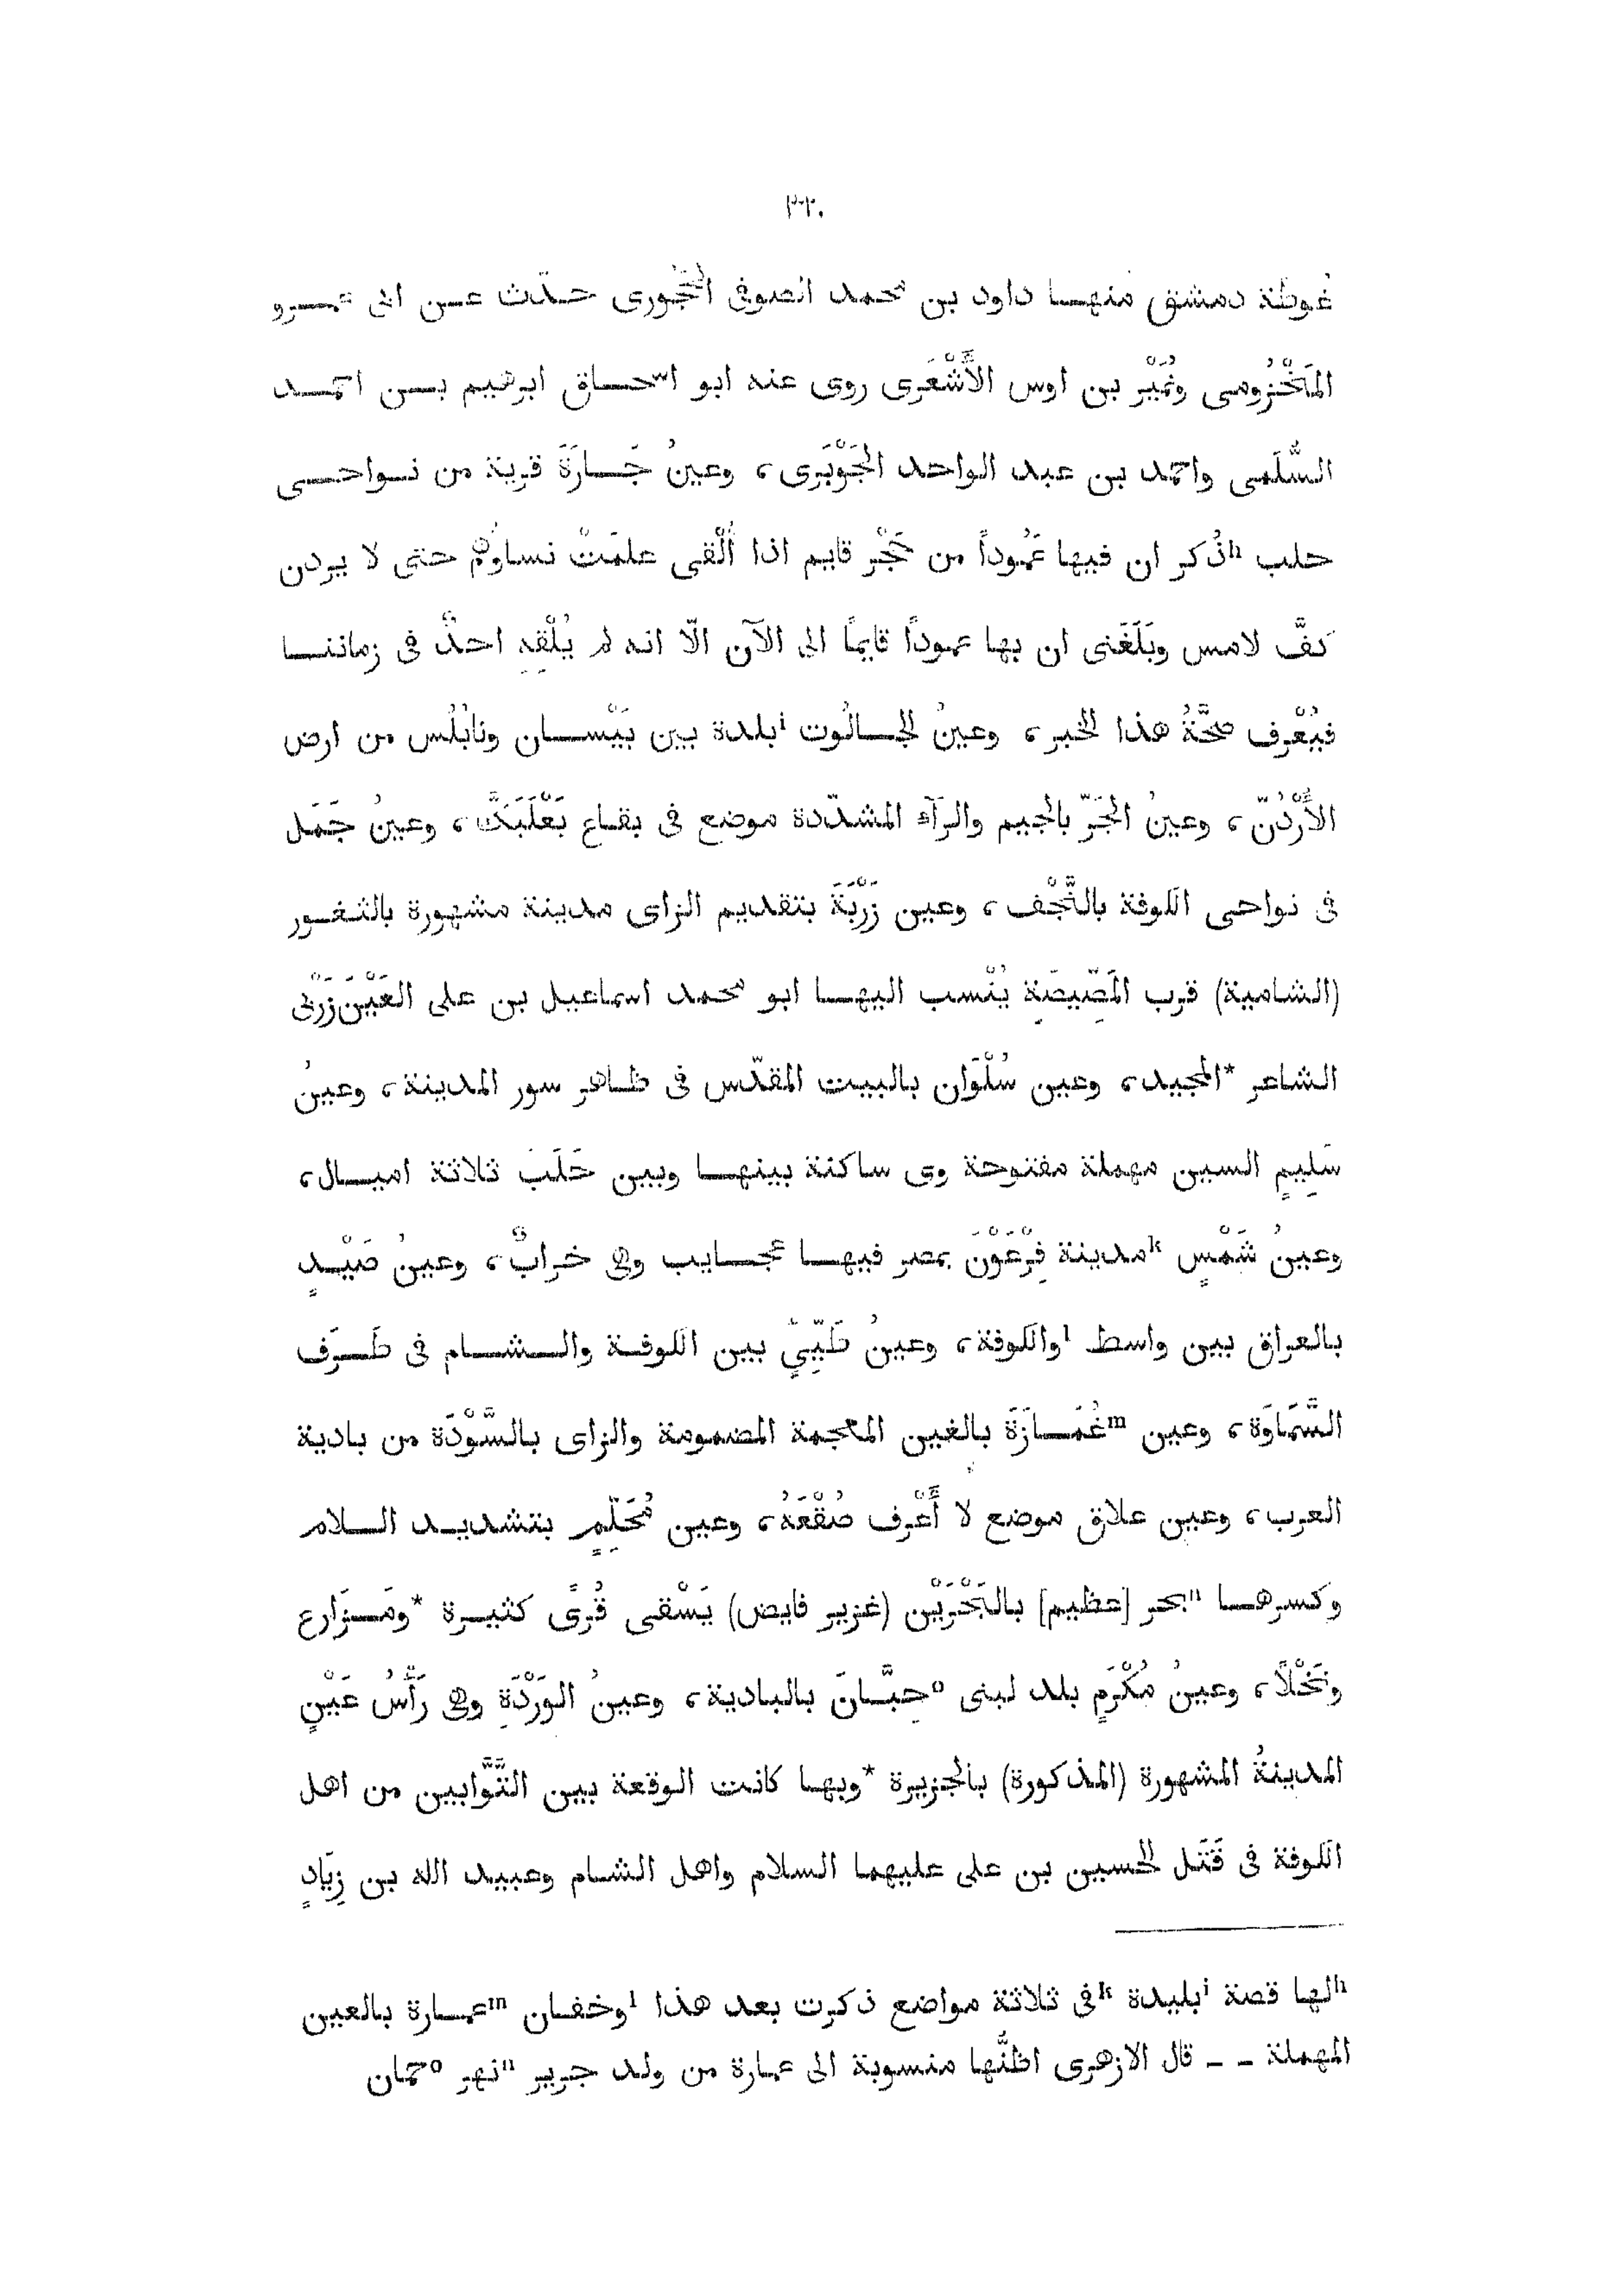 ٣٢٠
غُوطة دمشق منهـــا داود بن محمد الصوفى الحَجُورى حـدّث عـن ابى عمـــرو
المَخْزُومى ونُمَيْر بن اوس الأَشْعَرى روى عنه ابو اسحـاق ابرهيم بـن احمـد
السُّلَمى واحمد بن عبد الواحد الجَوْبَرى، وعينُ جَــارَةَ قرية من نـواحــى
حلب hذُكر ان فيها عَمُوداً من حَجْر قايم اذا أُلْقى علمَتْ نساوُهم حتى لا يردن
كفَّ لامس وبَلَغَنى ان بها عمودًا قايمًا الى الآن الّا انه لم يُلْقِهِ احدٌ فى زماننــا
فيُعْرف صحَّةُ هذا الخبر، وعينُ الجـالُوت iبلدة بين بَيْســان ونابُلُس من ارض
الأُرْدُنّ، وعينُ الجَرّ بالجيم والرَآء المشدّدة موضع فى بقاع بَعْلَبَكَّ، وعينُ جَمَل
فى نواحى الكوفة بالنَّجْف، وعين زَرْبَةَ بتقديم الزاى مدينة مشهورة بالثـغــور
(الشامية) قرب المَصِّيصَةِ يُنْسب اليهــا ابو محمد اسماعيل بن على العَيْنَ‌زَرْبى
الشاعر *المجيد، وعين سُلْوَان بالبيت المقدّس فى ظـاهر سور المدينة، وعينُ
سَلِيمٍ السين مهملة مفتوحة وى ساكنة بينهــا وبين حَلَبَ ثلاثة اميــال،
وعينُ شَمْسٍ kمدينة فِرْعَوْنَ بمصر فيهــا عجـايب وهى خرابٌ، وعينُ صَيْــدٍ
بالعراق بين واسط lوالكوفة، وعينُ ظَبْيٍ بين الكوفـة والــشــام فى طَــرَف
السَّمَاوَة، وعين mغُمَــازَةَ بالغين المعجمة المضمومة والزاى بالسَّوْدَة من بادية
العرب، وعين علاق موضع لا أَعْرف صُقْعَهُ، وعين مُحَلِّمٍ بتشديــد الــلام
وكسرهــا nبحر [عظيم] بالبَحْرَيْن (غزير فايض) يَسْقى قُرًى كثيـرة *ومَــزَارع
ونَخْلًا، وعينُ مُكْرَمٍ بلد لبنى oحِبَّــانَ بالبادية، وعينُ الوَرْدَةِ وهى رَأْسُ عَيْنٍ
المدينةُ المشهورة (المذكورة) بالجزيرة *وبهـا كانت الوقعة بين التَّوَّابين من اهل
الكوفة فى قَتَل الحسين بن على عليهما السلام واهل الشـام وعبيد الله بن زِيَادٍ
hلها قصة iبليدة kفى ثلاثة مواضع ذكرت بعد هذا lوخفـان mعمــارة بالعين
المهملة – – قال الازهرى اظنُّها منسوبة الى عمارة من ولد جرير nنهر oحمان